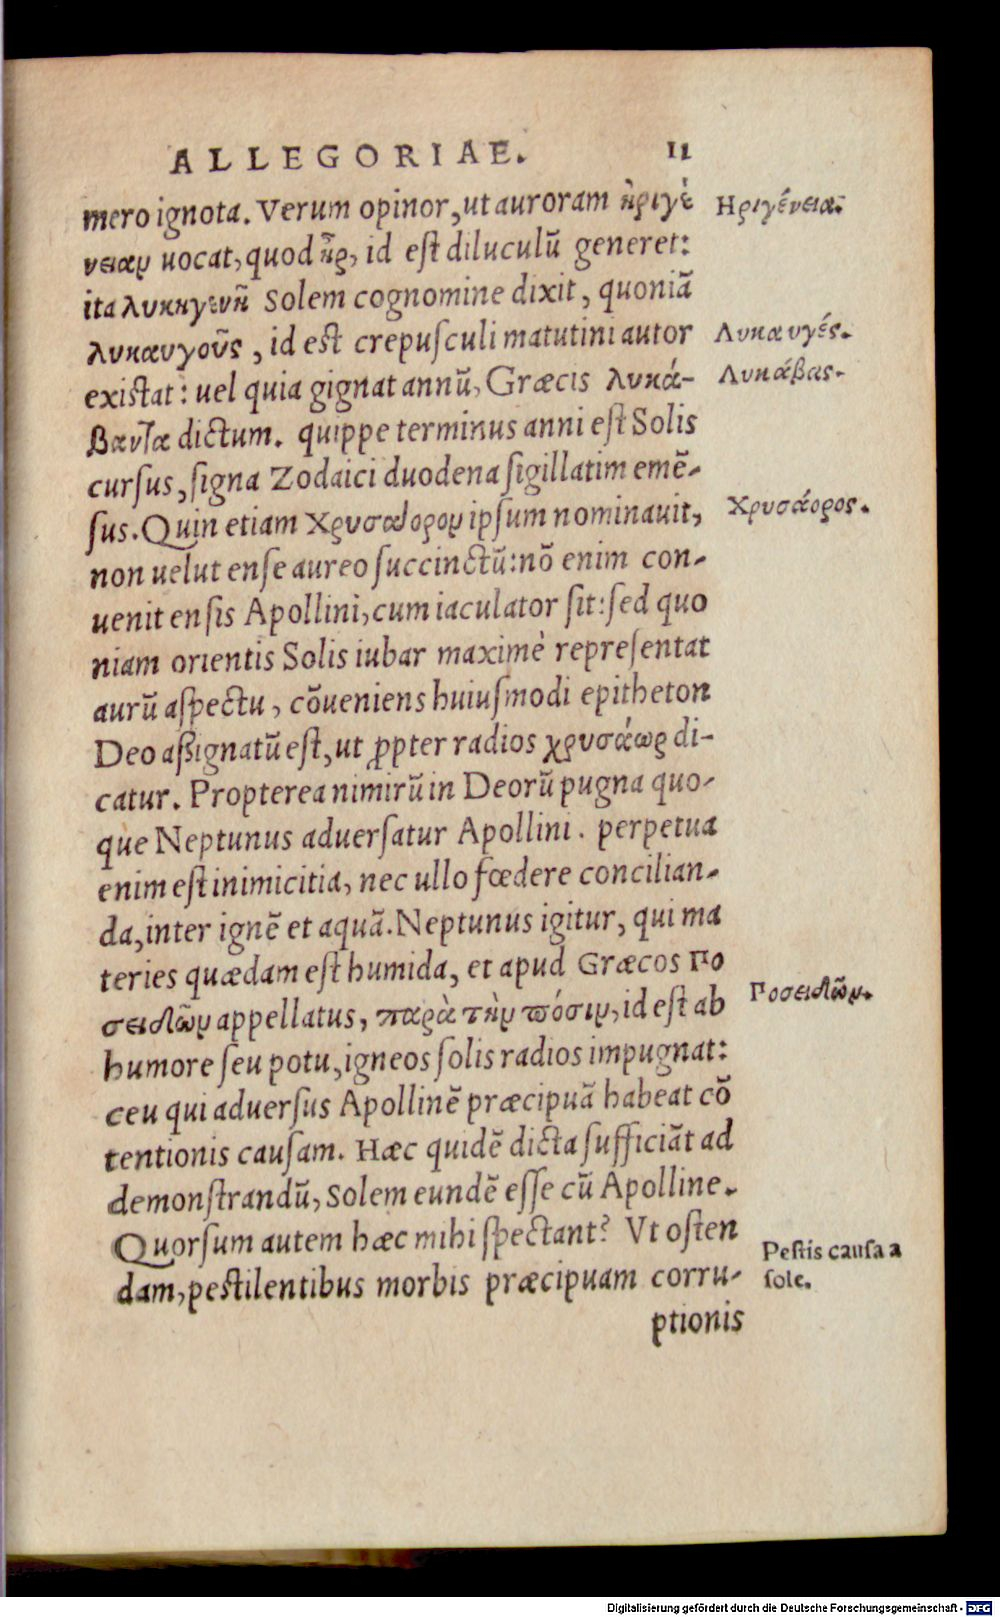 ALLEGORIAE. 11
mero ignota. Verum opinor, ut auroram ἠριγέ
νειαν uocat, quod ἦρ, id est diluculũ generet:
ita λυκηγενῆ Solem cognomine dixit, quoniã
λυκαυγοῦς, id est crepusculi matutini autor
existat: uel quia gignat annũ, Græcis λυκά-
βαντα dictum. quippe terminus anni est Solis
cursus, signa Zodaici duodena sigillatim emẽ-
sus. Quin etiam χρυσάορον ipsum nominauit,
non uelut ense aureo succinctũ: nõ enim con-
uenit ensis Apollini, cum iaculator sit: sed quo
niam orientis Solis iubar maximè repræsentat
aurũ aspectu, cõueniens huiusmodi epitheton
Deo aßignatũ est, ut ꝓpter radios χρυσάωρ di-
catur. Propterea nimirũ in Deorũ pugna quo-
que Neptunus aduersatur Apollini. perpetua
enim est inimicitia, nec ullo fœdere concilian-
da, inter ignẽ et aquã. Neptunus igitur, qui ma
teries quædam est humida, et apud Græcos Πο
σειδῶν appellatus, παρὰ τὴν πόσιν, id est ab
humore seu potu, igneos solis radios impugnat:
ceu qui aduersus Apollinẽ præcipuã habeat cõ
tentionis causam. Hæc quidẽ dicta sufficiãt ad
demonstrandũ, Solem eundẽ esse cũ Apolline.
Quorsum autem hæc mihi spectant? Vt osten
dam, pestilentibus morbis præcipuam corru-
ptionis
Ηριγένεια.
Λυκαυγές.
Λυκάβας.
Χρυσάορος.
Ποσειδῶν.
Pestis causa a
sole.
Digitalisierung gefördert durch die Deutsche Forschungsgemeinschaft - DFG